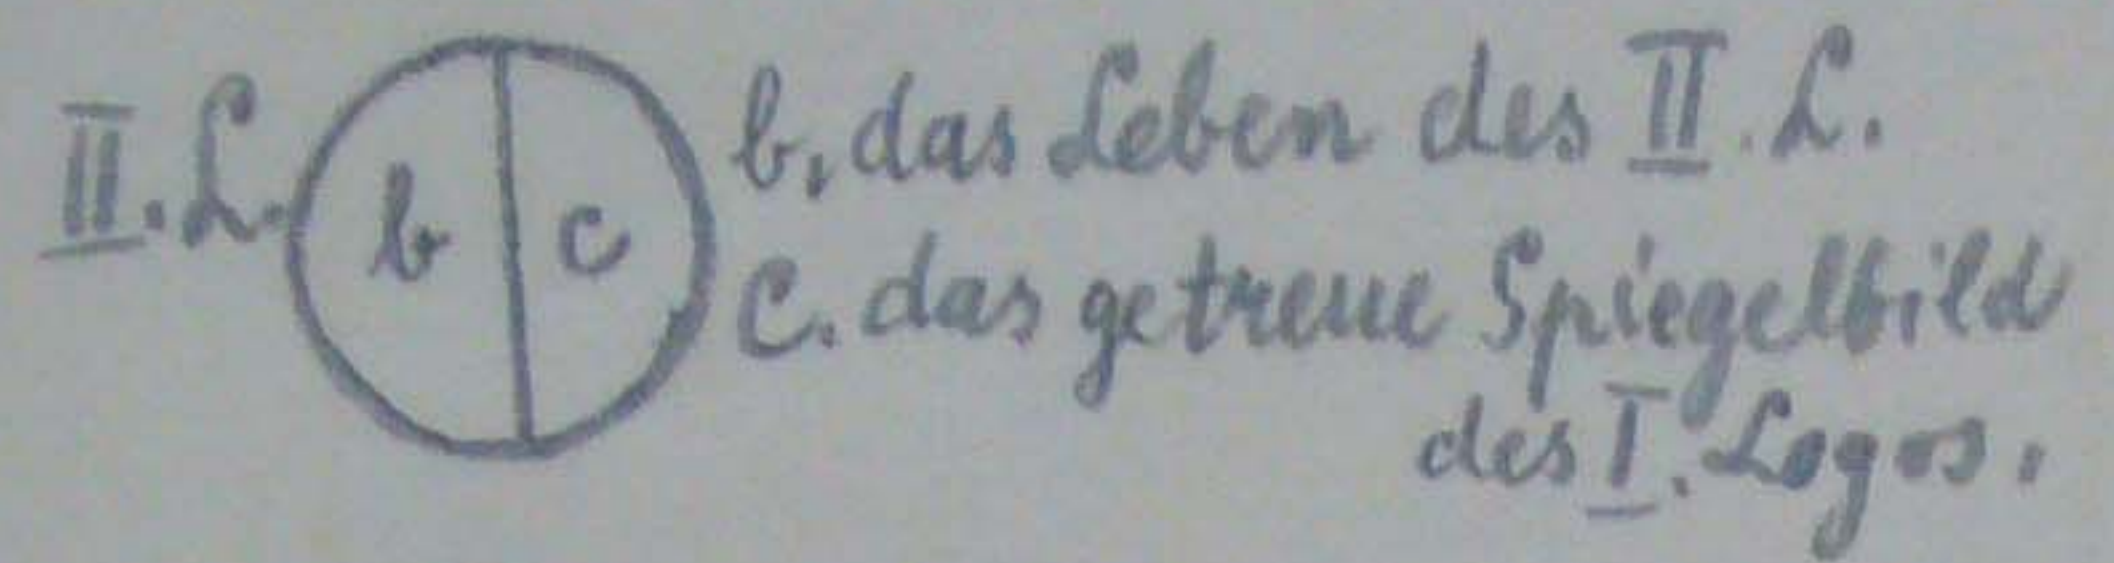 II. L. b c b. das Leben des II. L.
c. das getreue Spiegelbild
des I. Logos.